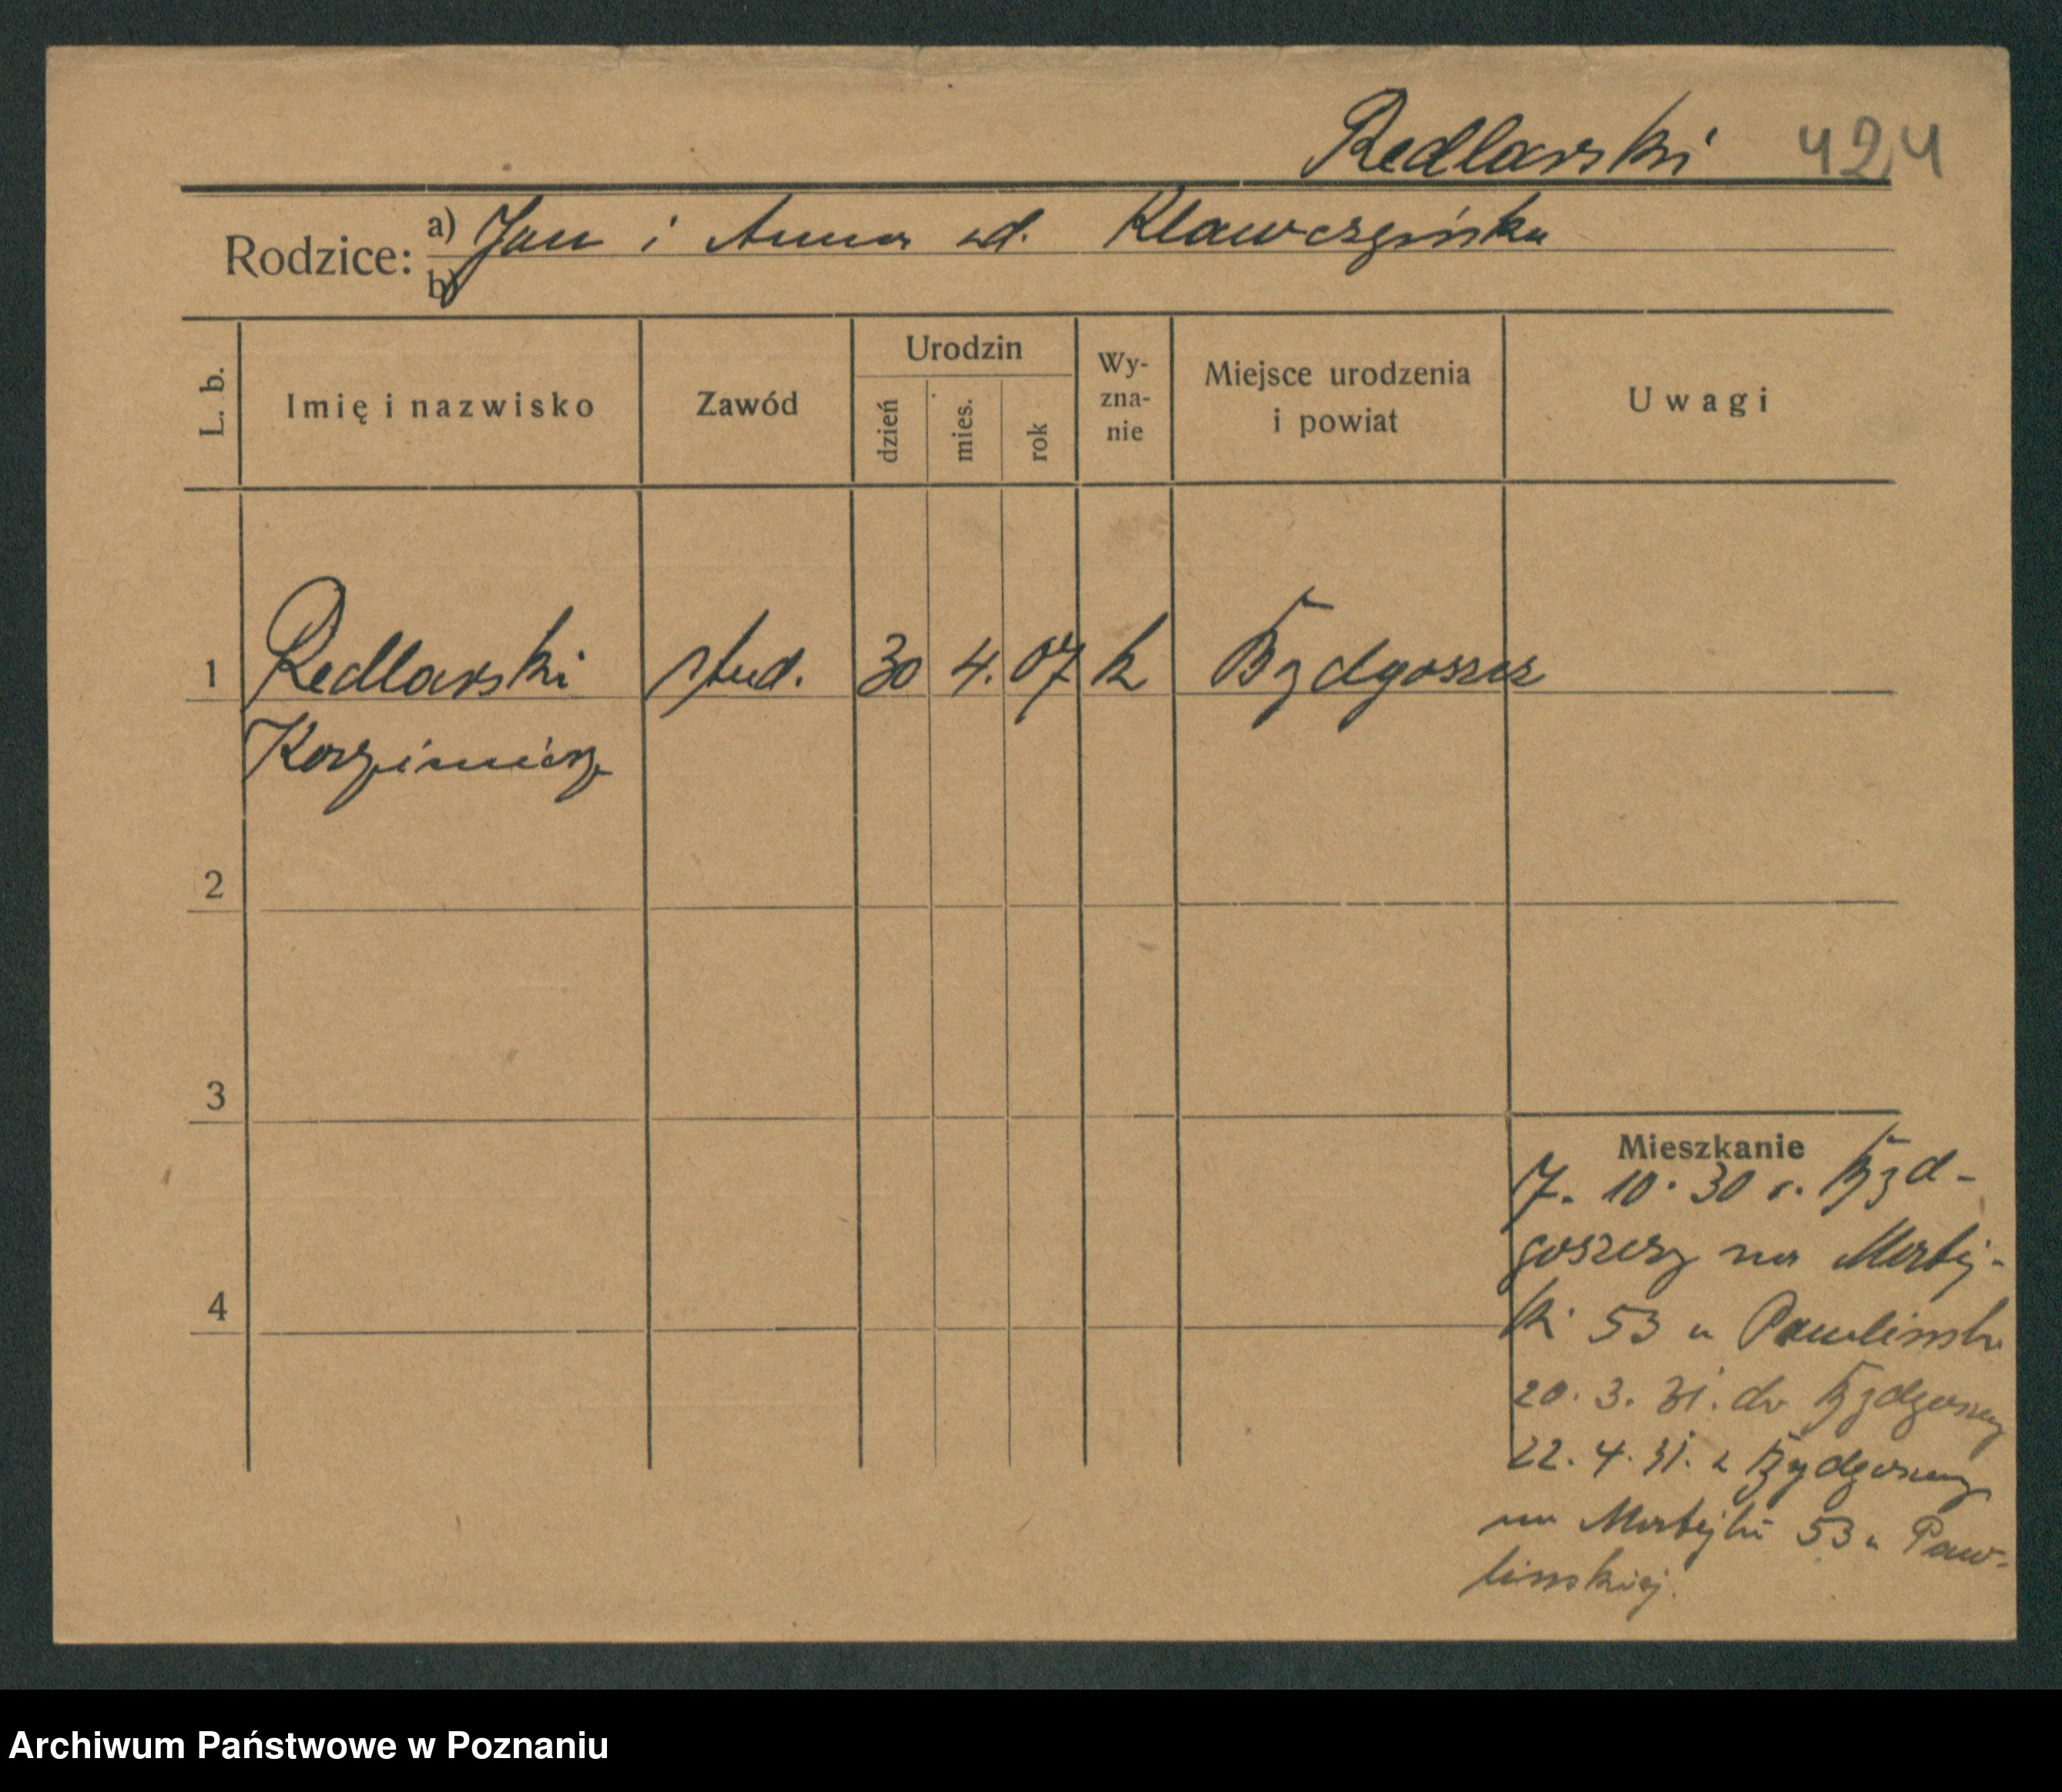 Redlarski 424
Rodzice: a) Jan i Anna wd. Klawczyńska
b)
L. b. Imię i nazwisko Zawód Urodzin dzień mies. rok Wy-zna-nie Miejsce urodzenia i powiat Uwagi
1 Redlarski stud. 30 4. 07 k Bydgoszcz
Kazimierz
2
3
4
Mieszkanie
7. 10. 30 r. Byd-
goszczy na Matej-
ki 53 u
20. 3. 31. do Bydgoszczy
22. 4. 31. z Bydgoszczy
na Matejki 53 u Paw-
linskiej.
Archiwum Państwowe w Poznaniu